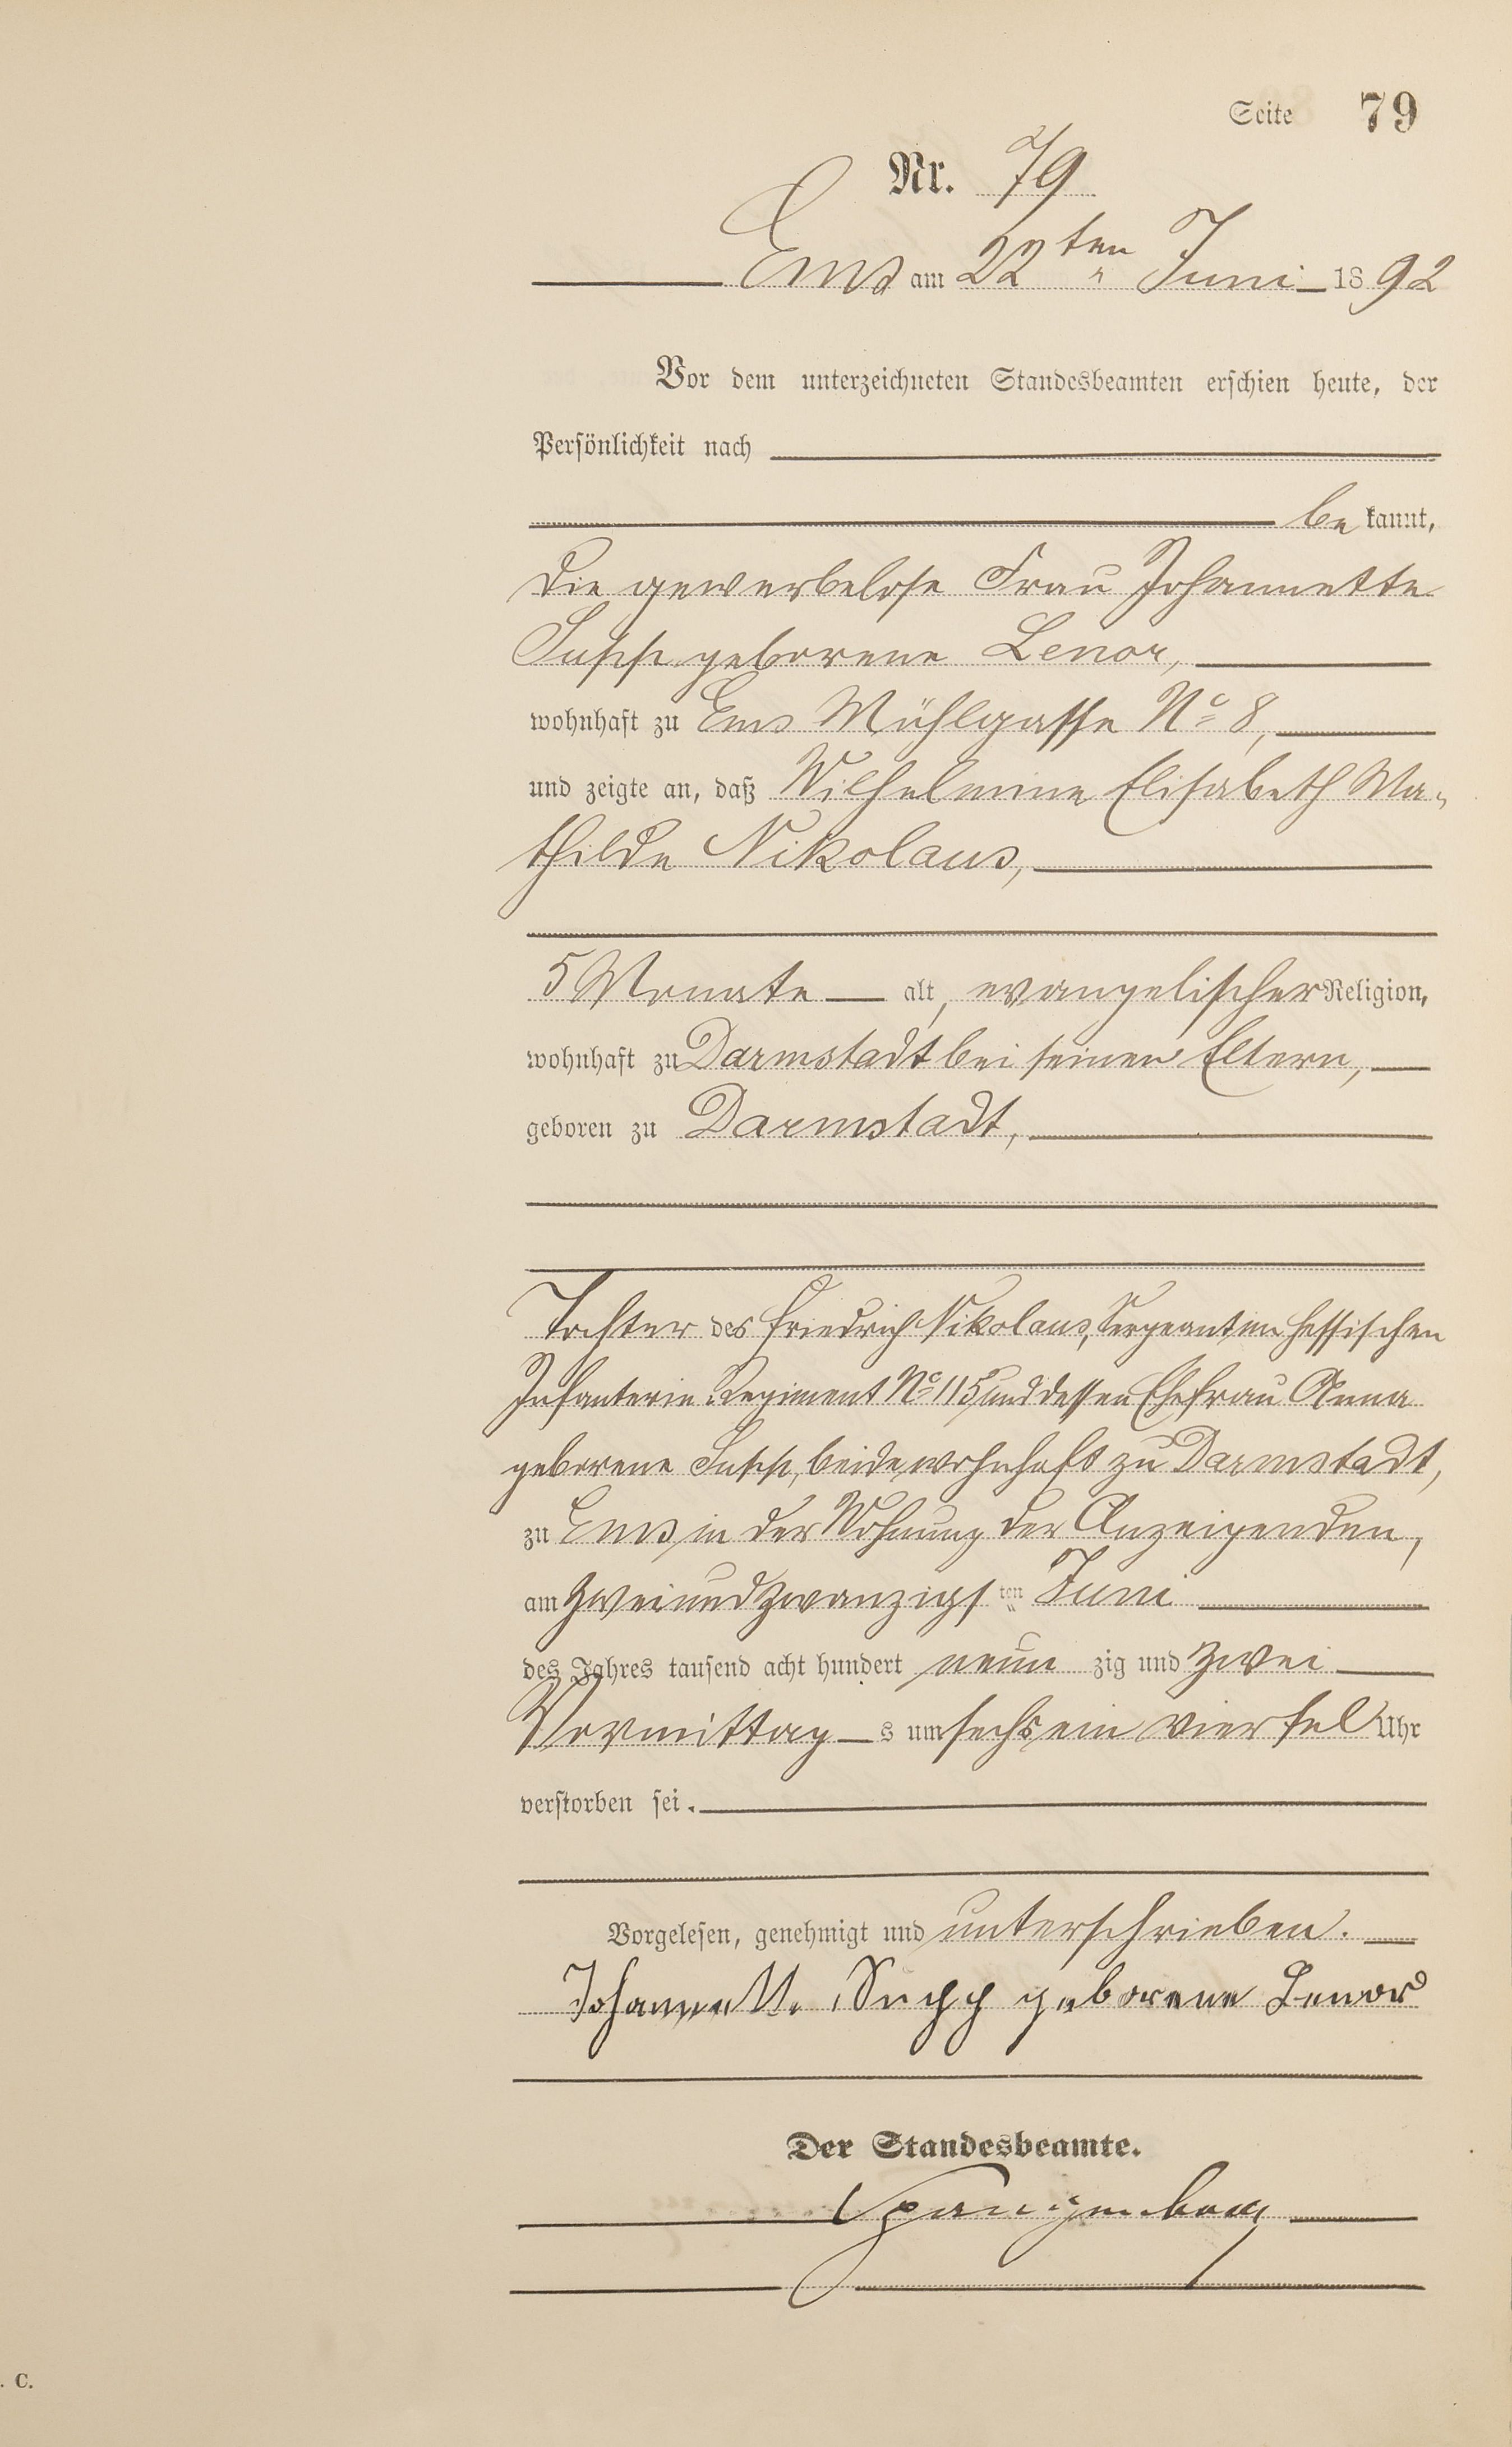 Seite 79
Nr. 79
Ems am 22ten Juni 1892
Vor dem unterzeichneten Standesbeamten erschien heute, der
Persönlichkeit nach
bekannt,
die gewerbelose Frau Johannette
Supp geborene Lenor,
wohnhaft zu Ems Mühlgasse No 8,
und zeigte an, daß Wilhelmine Elisabeth Ma-
thilde Nikolaus,
5 Monate alt, evangelischer Religion,
wohnhaft zu Darmstadt bei seinen Eltern,
geboren zu Darmstadt,
Tochter des Friedrich Nikolaus, Sergeant im hessischen
Infanterie Regiment No 115 und dessen Ehefrau Anna
geborene Supp, beide wohnhaft zu Darmstadt,
zu Ems in der Wohnung der Anzeigenden,
am zweiundzwanzigsten Juni
des Jahres tausend acht hundert neunzig und zwei
Vormittags um sechs ein viertel Uhr
verstorben sei.
Vorgelesen, genehmigt und unterschrieben.
Johannette Supp geborene Lenor
Der Standesbeamte.
Spangenberg
. C.